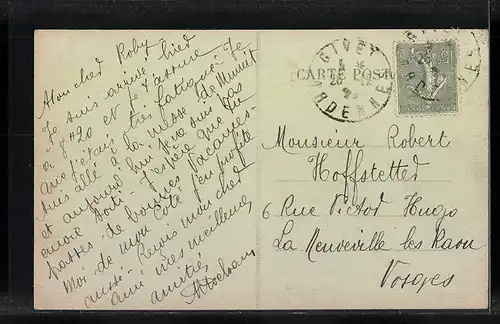 Mon cher Roby
Je suis arrivé hier
à 7h20 et je t'assure
que j'étais très fatigué. Je
suis allé à la messe de Minuit
et aujourd'hui je ne suis pas
encore sorti. J'espère que tu
passes de bonnes vacances.
Moi de mon côté j'en profite
aussi. Reçois mon cher
ami mes meilleures
amitiés
CARTE POST
GIVET
ARDENNES
15c
Monsieur Robert
Hoffstetted
6 Rue Victor Hugo
La Neuveville les Raon
Vosges